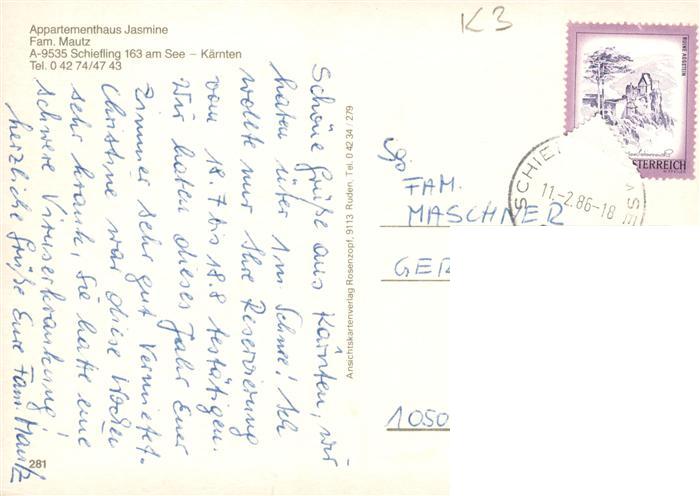 Appartementhaus Jasmine
Fam. Mautz
A-9535 Schiefling 163 am See – Kärnten
Tel. 0 42 74/47 43
Schöne Grüße aus Kärnten, wir
haben über 1m Schnee! Ich
wollte nur Ihre Reservierung
vom 18.7 bis 18.8 bestätigen.
Wir haben dieses Jahr Euer
Zimmer sehr gut Vermietet.
Christine war diese Wochen
sehr krank, Sie hatte eine
schwere Viruserkrankung!
herzliche Grüße Eure Fam. Mautz
281
Ansichtskartenverlag Rosenzopf, 9113 Ruden, Tel. 0 42 34 / 279
K3
RUINE AGGSTEIN
ÖSTERREICH
SCHIEF
ASEE
11.-2.86-18
FAM.
MASCHNER
GER
1050